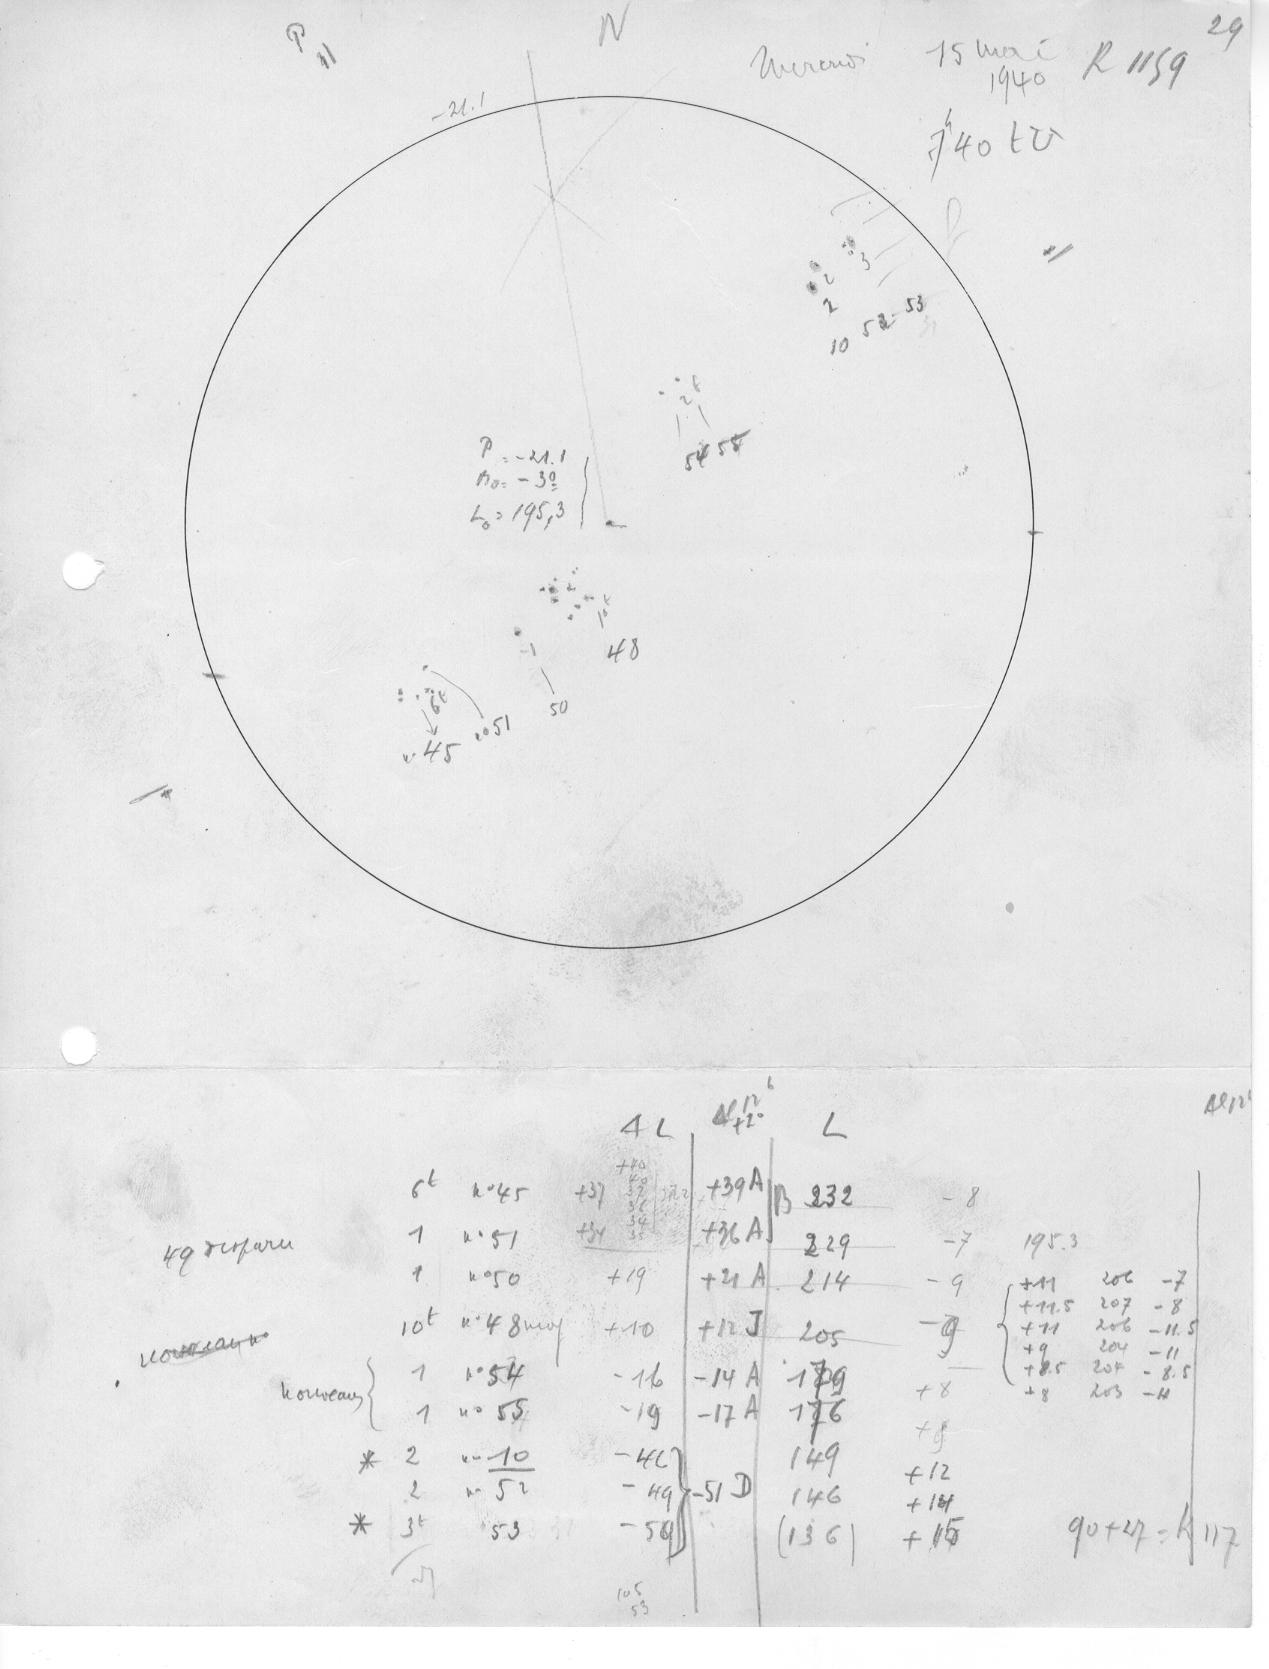 29
P N
15 mai R 1159
1940
7h40 tU
-21.1
3
2
2
52-53
10
2t
54 55
P = -21.1
B0 = -3°
L0 = 195,3
1
48
1
50
6t
n°51
n°45
ΔL L
6t n°45 +37 +39A B 232 -8
49 disparu 1 n°51 +34 +36A 229 -7 195.3
1 n°50 +19 +21 A 214 -9 +11 206 -7
+11.5 207 -8
10t n°48 +10 +12 J 205 -9 +11 206 -11.5
+9 204 -11
nouveaux 1 n°54 -16 -14 A 179 +8 +8.5 204 -8.5
+8 203 -11
1 n°55 -19 -17 A 176 +9
* 2 n°10 149 +12
2 n°52 -49 -51 D 146 +14
* 3t 53 (136) +15 90+27=R 117
105
53